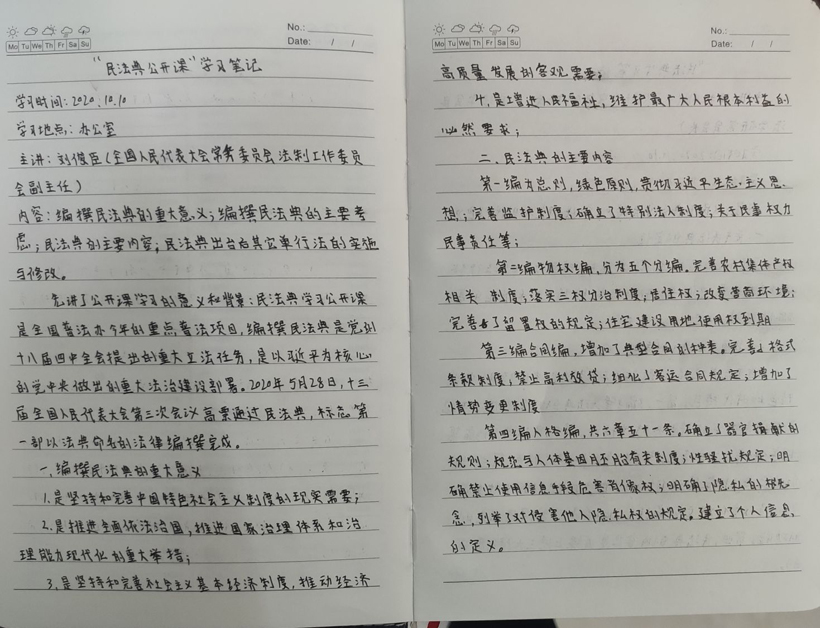 No.:
Date: / /
Mo Tu We Th Fr Sa Su
“民法典公开课”学习笔记
学习时间:2020.10.10
学习地点:办公室
主讲:刘俊臣(全国人民代表大会常务委员会法制工作委员
会副主任)
内容:编撰民法典的重大意义;编撰民法典的主要考
虑;民法典的主要内容;民法典出台后其它单行法的实施
与修改。
先讲了公开课学习的意义和背景:民法典学习公开课
是全国普法办今年的重点普法项目,编撰民法典是党的
十八届四中全会提出的重大立法任务,是以习近平为核心
的党中央做出的重大法治建设部署。2020年5月28日,十三
届全国人民代表大会第三次会议高票通过民法典,标志第
一部以法典命名的法律编撰完成。
一、编撰民法典的重大意义
1.是坚持和完善中国特色社会主义制度的现实需要;
2.是推进全面依法治国,推进国家治理体系和治
理能力现代化的重大举措;
3.是坚持和完善社会主义基本经济制度,推动经济
No.:
Date: / /
Mo Tu We Th Fr Sa Su
高质量发展的客观需要;
4.是增进人民福祉,维护最广大人民根本利益的
必然要求;
二、民法典的主要内容
第一编为总则,绿色原则,贯彻习近平生态.主义思
想;完善监护制度;确立了特别法人制度;关于民事权力
民事责任等;
第二编物权编,分为五个分编。完善农村集体产权
相关 制度;落实三权分治制度;居住权;改变营商环境;
完善了留置权的规定;住宅建设用地使用权到期
第三编合同编,增加了典型合同的种类。完善了格式
条款制度,禁止高利放贷;细化了客运合同规定;增加了
情势变更制度
第四编人格编,共六章五十一条。确立了器官捐献的
规则;规范与人体基因胚胎有关制度;性骚扰规定;明
确禁止使用信息手段危害肖像权;明确了隐私的概
念,列举了对侵害他人隐私权的规定。建立了个人信息
的定义。